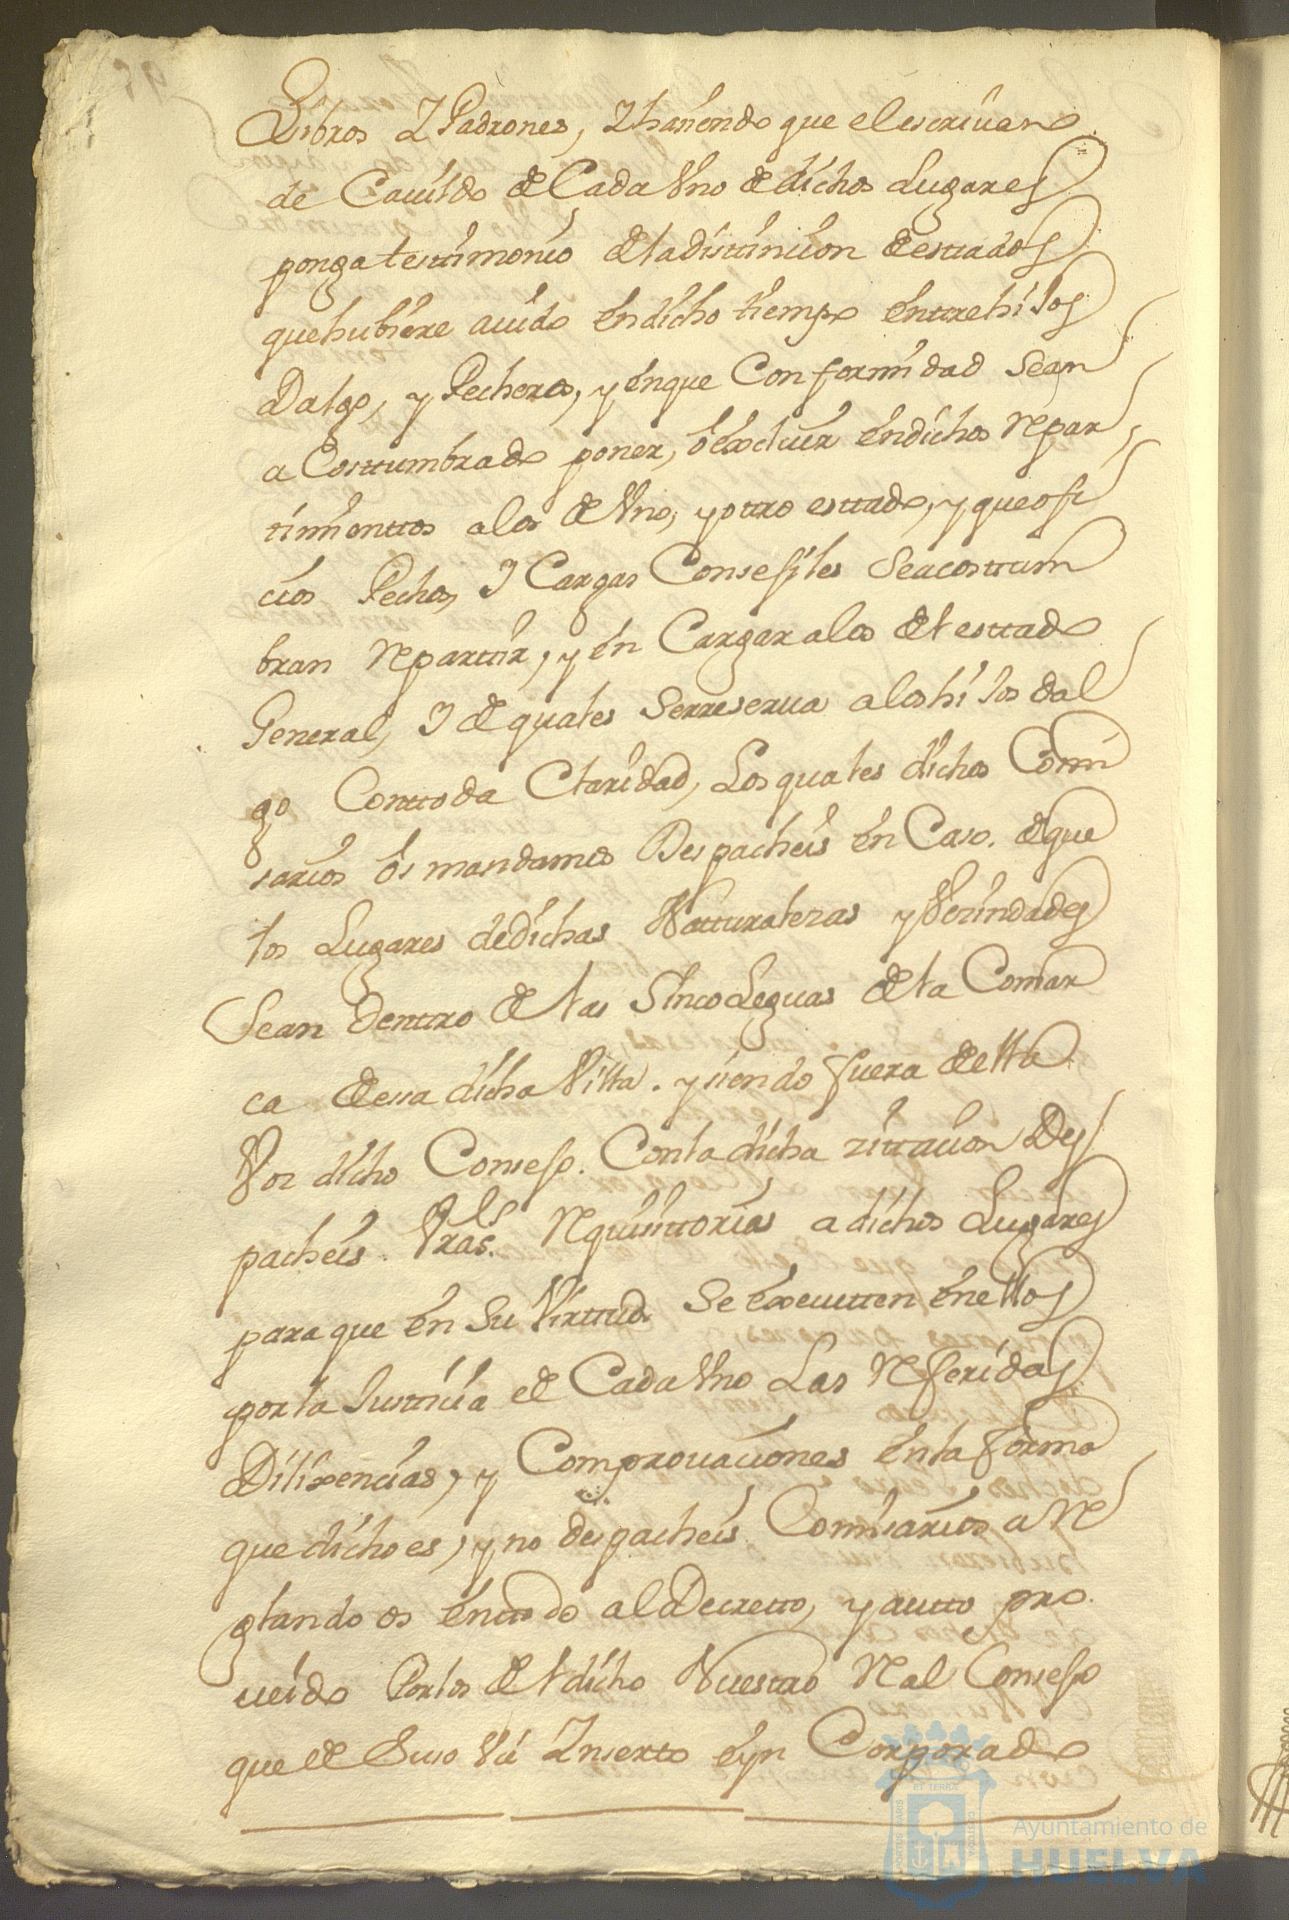 Libros Y Padrones, Y haciendo que el escrivano
de Cavildo de Cada Uno de dichos Lugares
ponga testtimonio de la disttincion de esttados
que hubiere avido en dicho tiempo entre hijos
Dalgo, y Pecheros, y en que Conformidad sean
a Costtumbrado poner, o excluir en dichos repar
timientos a los de Uno, y ottro esttado, y que ofi
cios Pechos, Y Cargas Consejiles Se acosttum
bran repartir, y en Cargar a los del esttado
General, Y de quales Serreserva a los hijos dal
go Con ttoda Claridad, Los quales dichos Comi
sarios os mandamos Despacheis en Caso. de que
los Lugares de dichas Natturalezas y Vezindades
Sean dentro de las Sinco Leguas de la Comar
ca de esa dicha Villa. y siendo fuera de ella
Vos dicho Consejo. Con la dicha zittacion Des
pacheis. Vras. requisittorias a dichos Lugares
para que en Su Virttud Se executten en ellos
por la Justticia de Cada Uno Las referidas
Dilixencias, y Comprovaciones en la forma
que dicho es, y no despacheis Comisarios a re
glando os en ttodo al Decretto, y autto pro
veido Por los del dicho Nuestro Real Consejo
que de Suso Va Ynserto e yn Corporado
Ayuntamiento de
HUELVA